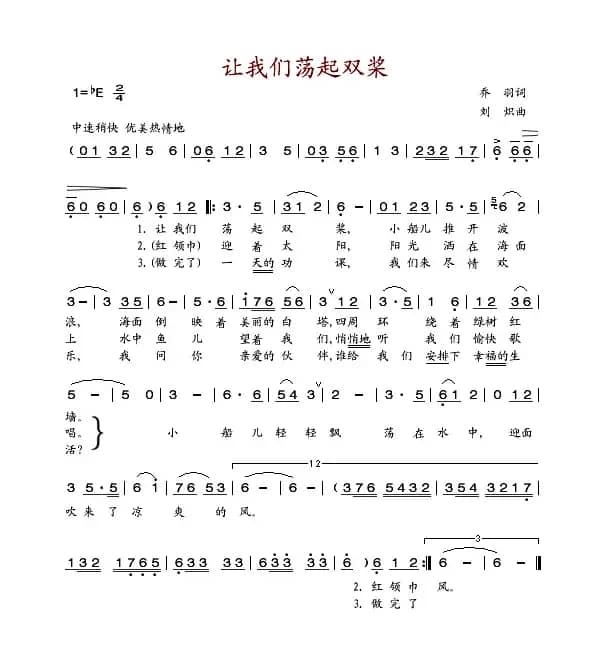 让我们荡起双桨
1=♭E 2/4 乔 羽词
刘 炽曲
中速稍快 优美热情地
(01 32 | 5 6 | 06 12 | 3 5 | 03 56 | 1 3 | 232 17 | 6 66 |
60 60 | 6) 612 |: 3· 5 | 31 2 | 6 - | 01 23 | 5· 5 | 6 - |
1. 让我们 荡 起 双 桨, 小船儿 推 开 波
2.(红领巾) 迎 着 太 阳, 阳光 洒 在 海面
3.(做完了) 一 天的 功 课, 我们来 尽 情 欢
3 - | 3 35 | 6 - | 5· 6 | 176 56 | 3 12 | 3· 5 | 1 6 | 12 36 |
浪, 海面 倒 映 着 美丽的 白 塔,四周 环 绕着 绿树 红
上 水中 鱼 儿 望着 我 们,悄悄地 听 我们 愉快 歌
乐, 我 问 你 亲爱的 伙 伴,谁给 我 们 安排下 幸福的 生
5 - | 5 0 | 3 - | 6· 6 | 54 3 | 12 3 | 5· 5 | 61 2 | 0 23 |
墙。
唱。 小 船 儿 轻 轻 飘 荡 在 水 中, 迎面
活?
12
3 5·5 | 6 1 | 76 53 | 6 - | 6 - | (376 5432 | 354 3217 |
吹 来 了 凉 爽 的 风。
3
132 1765 | 635 635 | 633 633 | 6) 612 :| 6 - | 6 - ‖
2. 红 领 巾 风。
3. 做 完 了